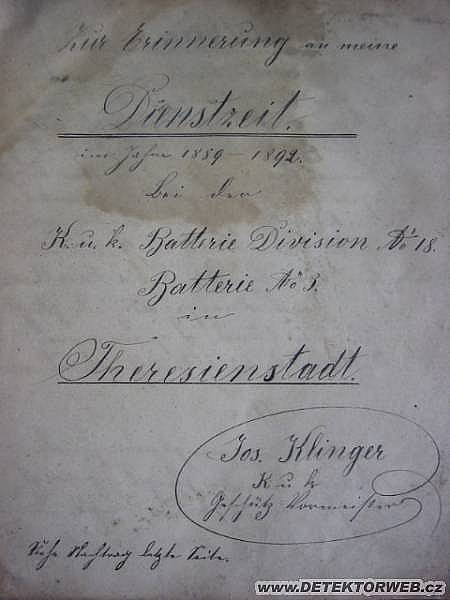 Zur Erinnerung an meine
Dienstzeit.
im Jahre 1889 – 1892.
bei der
K. u. k. Batterie Division No 18.
Batterie No 3.
in
Theresienstadt.
Jos. Klinger
K u k
Geschütz Vormeister
Siehe Nachtrag letzte Seite.
www.DETEKTORWEB.cz